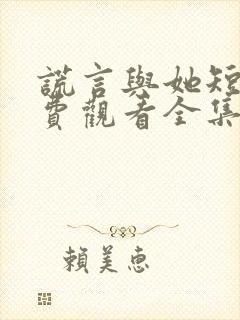 謊言與她短
費觀看全集
賴美惠